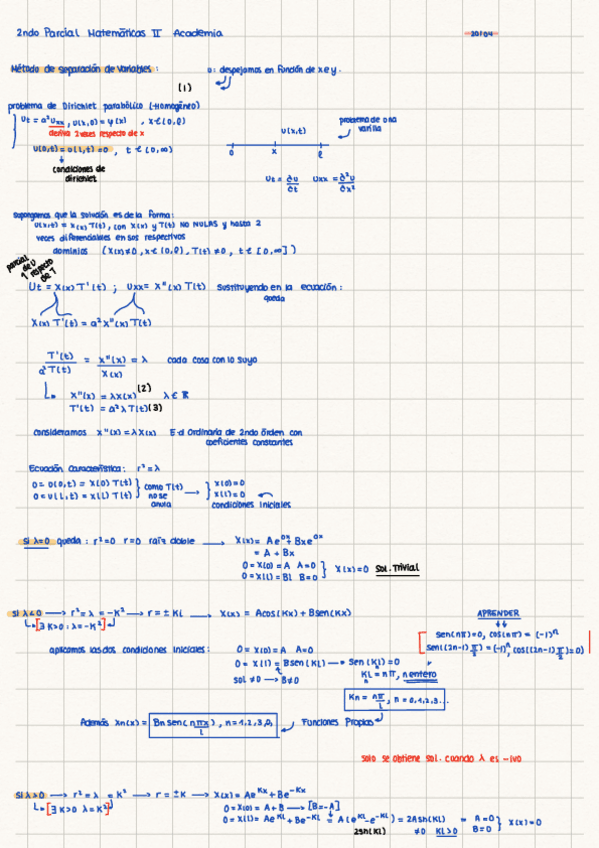 2ndo Parcial Matemáticas II Academia
20/04
Método de separación de Variables:
u: despejamos en función de x e y.
(1)
problema de Dirichlet parabólico (-Homogéneo)
Ut = a²Uxx, u(x,0) = φ(x) , x ∈ (0,ℓ)
deriva 2 veces respecto de x
u(0,t) = u(l,t) = 0 , t ∈ (0,∞)
condiciones de
dirichlet
problema de una
varilla
u(x,t)
0 x ℓ
Ut = ∂u/∂t Uxx = ∂²u/∂x²
supongamos que la solución es de la forma:
u(x,t) = X(x) T(t), con X(x) y T(t) NO NULAS y hasta 2
veces diferenciables en sus respectivos
dominios (X(x)≠0, x ∈ (0,ℓ), T(t) ≠0, t ∈ [0,∞])
parcial
de U
1 respecto
de T
Ut = X(x) T'(t) ; Uxx = X''(x) T(t) sustituyendo en la ecuación:
queda
X(x) T'(t) = a² X''(x) T(t)
T'(t)/a²T(t) = X''(x)/X(x) = λ cada cosa con lo suyo
X''(x) = λX(x) (2) λ ∈ ℝ
T'(t) = a²λT(t) (3)
consideramos X''(x) = λX(x) E.d Ordinaria de 2ndo órden con
coeficientes constantes
Ecuación Característica: r² = λ
0 = U(0,t) = X(0) T(t)
0 = U(L,t) = X(L) T(t)
como T(t)
no se
anula
X(0) = 0
X(l) = 0
condiciones iniciales
si λ=0 queda: r²=0 r=0 raíz doble → X(x) = Ae^0x + Bxe^0x
= A + Bx
0 = X(0) = A A=0
0 = X(L) = Bl B=0
X(x)=0 Sol. Trivial
si λ<0 → r² = λ = -K² → r = ± Ki → X(x) = Acos(Kx) + Bsen(Kx)
[∃ K>0 : λ = -K²]
APRENDER
sen(nπ)=0, cos(nπ) = (-1)ⁿ
sen((2n-1)π/2) = (-1)ⁿ, cos((2n-1)π/2)=0)
aplicamos las dos condiciones iniciales: 0 = X(0) = A A=0
0 = X(l) = Bsen(KL) → Sen(KL) = 0
sol ≠0 → B≠0
KL = nπ, n entero
Kn = nπ/L, n = 0,1,2,3...
Además Xn(x) = Bn sen(nπx/L), n = 1,2,3,0, Funciones Propias
solo se obtiene sol. cuando λ es -ivo
si λ>0 → r² = λ = K² → r = ± K → X(x) = Ae^Kx + Be^-Kx
[∃ K>0 λ = K²]
0 = X(0) = A + B → [B=-A]
0 = X(L) = Ae^KL + Be^-KL = A(e^KL - e^-KL) = 2Ash(KL) = A=0
2sh(KL) ≠0 KL>0 B=0
X(x)=0